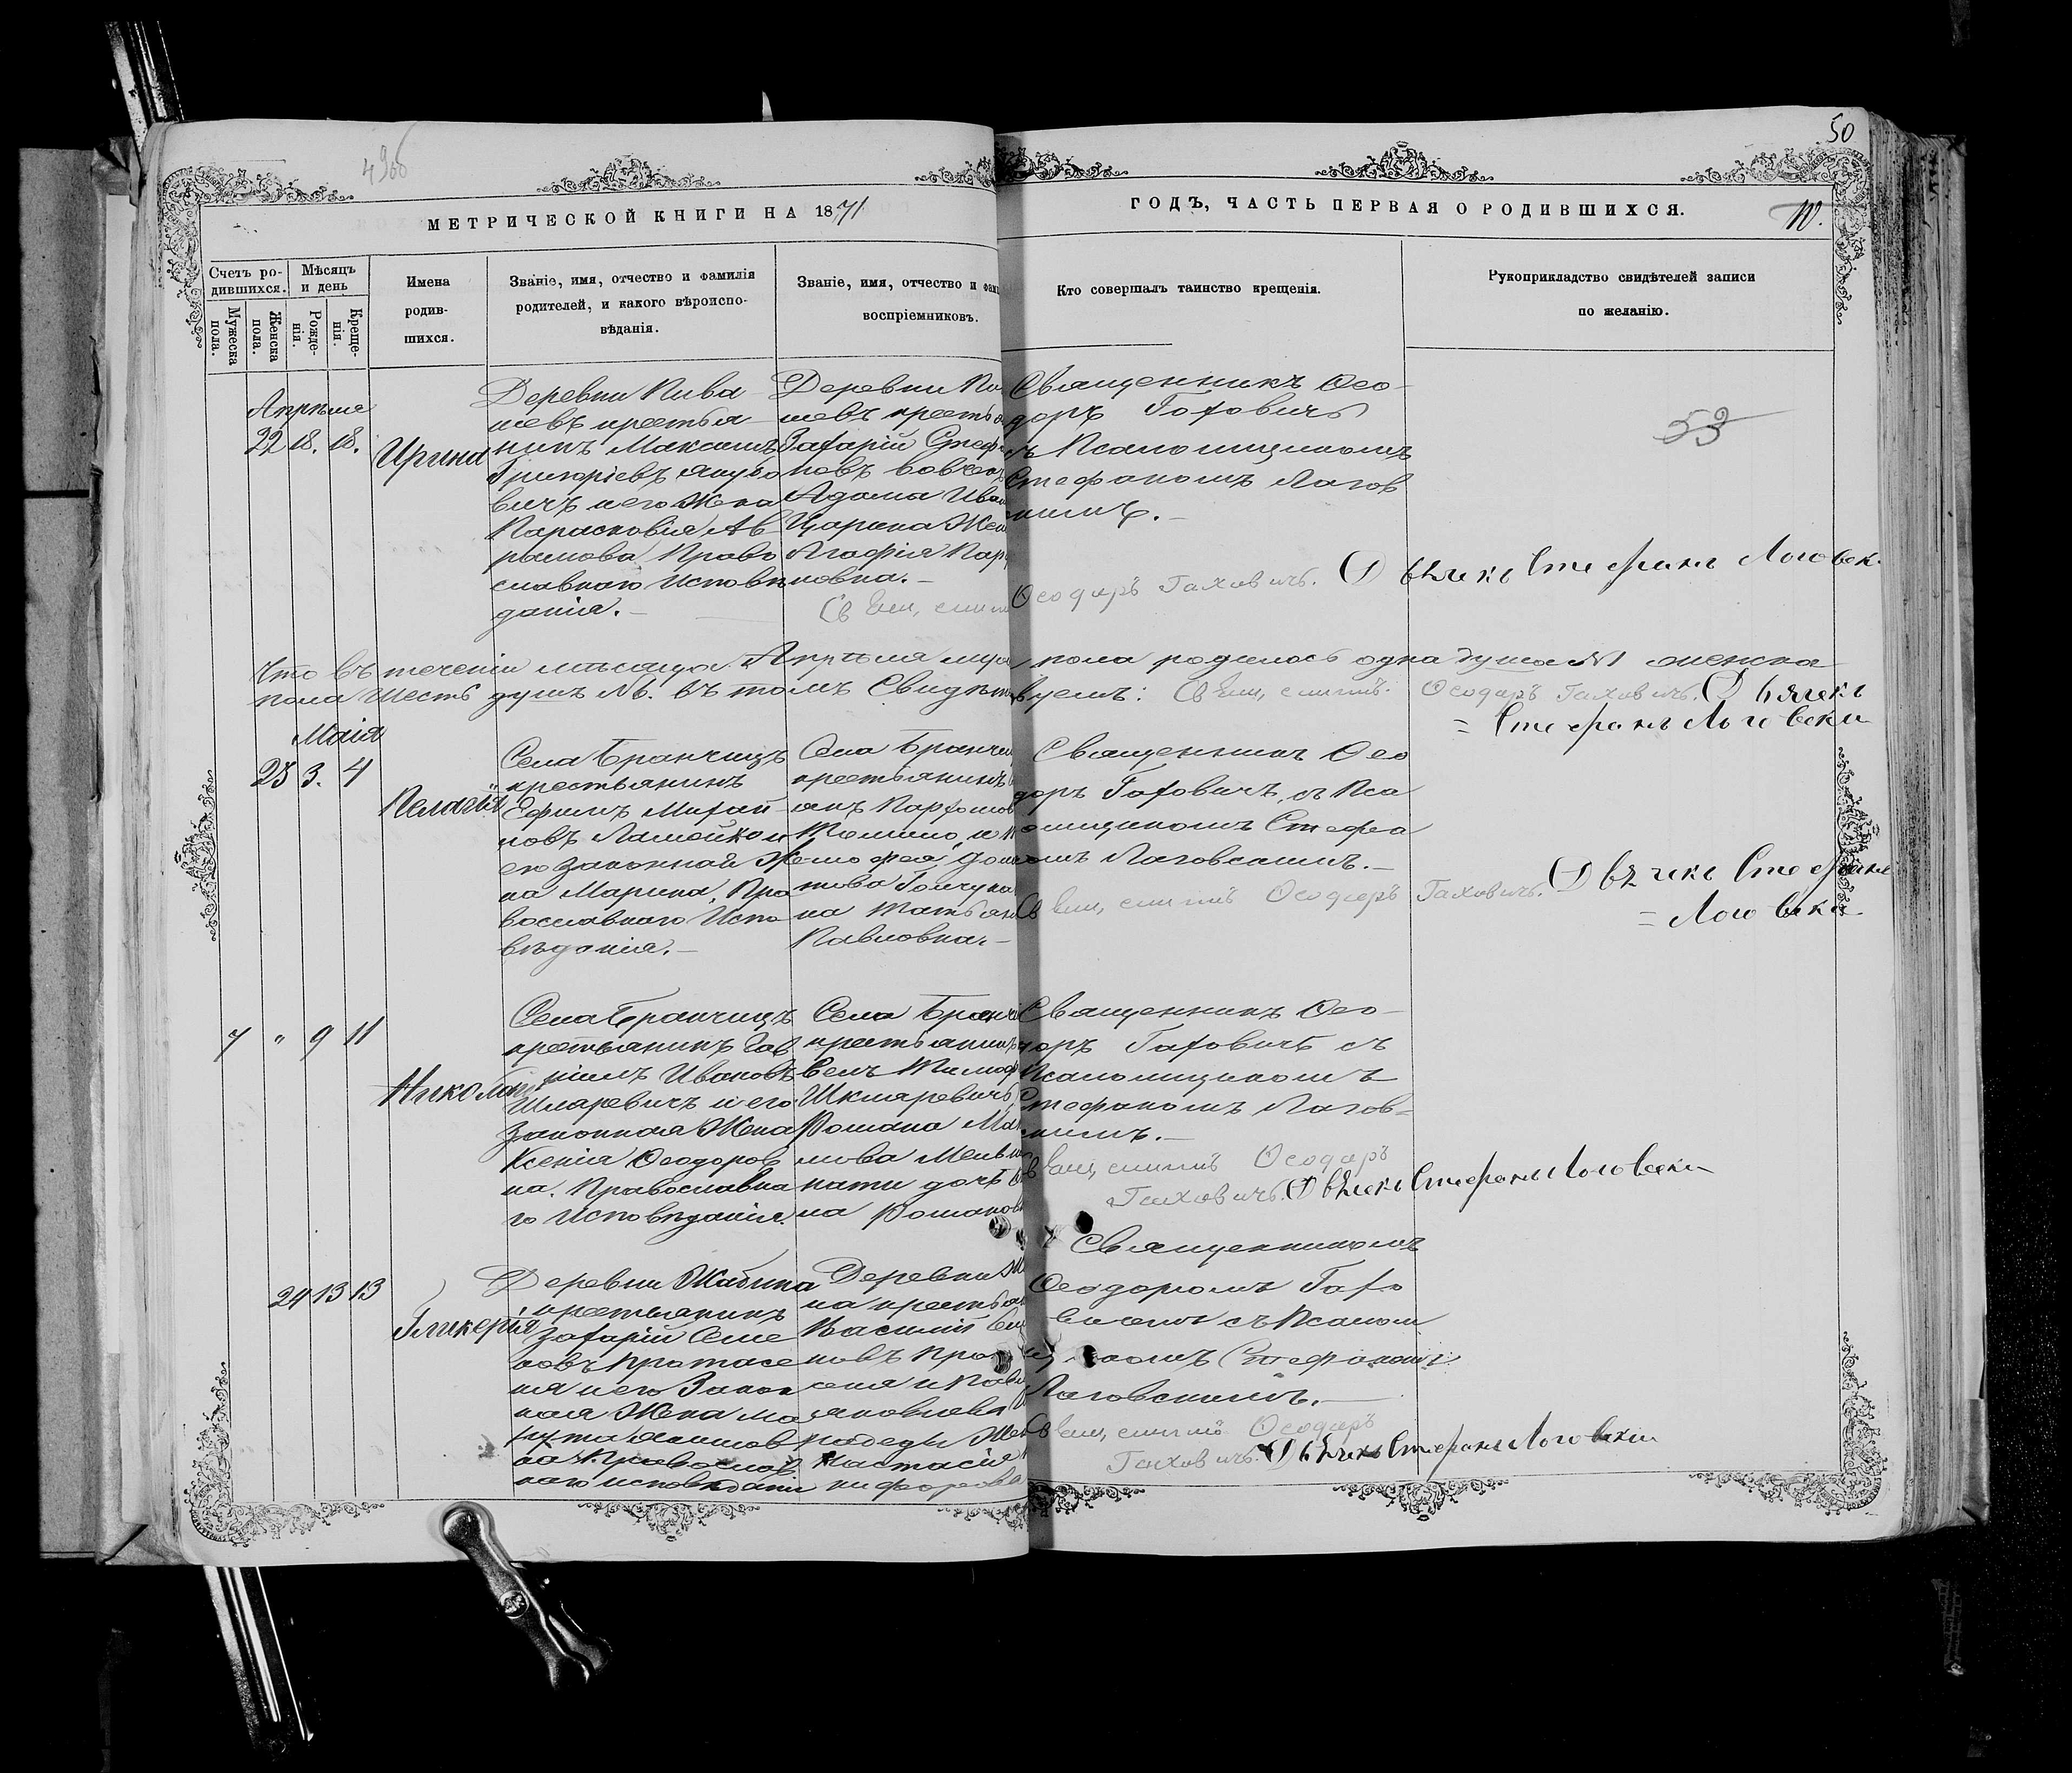 49об
50
МЕТРИЧЕСКОЙ КНИГИ НА 1871
ГОДЪ, ЧАСТЬ ПЕРВАЯ О РОДИВШИХСЯ.
Счетъ ро-
дившихся.
Мужеска
пола.
Женска
пола.
Мѣсяцъ
и день
Рожде-
нія.
Креще-
нія.
Имена
родив-
шихся.
Званіе, имя, отчество и фамилія
родителей, и какого вѣроиспо-
вѣданія.
Званіе, имя, отчество и фам
воспріемниковъ.
Кто совершалъ таинство крещенія.
Рукоприкладство свидѣтелей записи
по желанію.
Апрѣля
22 18. 18.
Ирина
Деревни Пива
шевъ крестья
нинъ Максимъ
Григоріевъ
вичъ и его Жена
Парасковія Ав
рамова Право
славнаго Исповѣ
данія.
Деревни Пи
шевъ крестья
Захарій Стеф
новъ
Адама Иван
Царика Жен
Агафія Кар
повна.
Священникъ Ѳео-
доръ Гахович
съ Псаломщикомъ
Стефаномъ Лагов
скимъ.
53
Священникъ Ѳеодоръ Гаховичъ. Дьячекъ Стефанъ Логовск.
Что въ теченіи мѣсяца Апрѣля муж пола родилось одна душа №1 женска
пола Шесть душъ №6. въ томъ Свидѣтельствуемъ: Священникъ Ѳеодоръ Гаховичъ. Дьячекъ
= Стефанъ Логовски
Маія
23 3. 4
Пелагія
Села Бранчицъ
крестьянинъ
Ефимъ Михай
ловъ и
его законная Же
на Марина, Пра
вославнаго Испо
вѣданія.
Села Бранчи
крестьянинъ
Парфенов
и
на Татьян
Павловна.
Священникъ Ѳео
доръ Гаховичъ, съ Пса
ломщикомъ Стефа
номъ Лаговскимъ.
Священникъ Ѳеодоръ Гаховичъ. Дьячекъ Стефанъ
= Логовски
7 " 9 11
Николай
Села Бранчицъ
крестьянинъ Гав
ріилъ Ивановъ
Шкляревичъ и его
Законная Жена
Ксенія Ѳеодоров
на. Православна
го Исповѣданія.
Села Бранчи
крестьянинъ
велъ Тимоф
Шкляревичъ,
Романа Ма
дочь
на Романов
Священникъ Ѳео-
доръ Гаховичъ съ
Псаломщикомъ
Стефаномъ Лагов-
скимъ.
Священникъ Ѳеодоръ
Гаховичъ. Дьячекъ Стефанъ Логовски
24 13 13
Гликерія
Деревни Жабина
крестьянинъ
Захарій Семе
новъ Протасе
ня и его Закон
ная Жена Ма
на Православ
наго исповѣдані
Деревни Ж
на крестьян
Василій Сем
новъ Про
сеня и
Яковлева
Жен
Настасія
Священникомъ
Ѳеодоромъ Гахо
вичемъ съ Псалом
щикомъ Стефаномъ
Лаговскимъ.
Священникъ Ѳеодоръ
Гаховичъ. Дьячекъ Стефанъ Логовскій